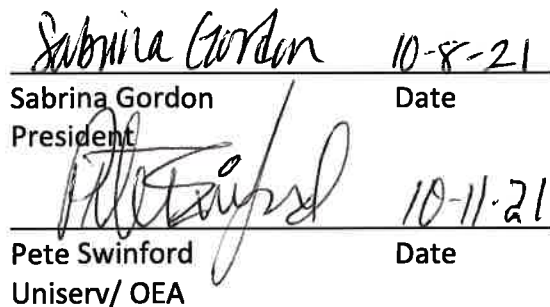 Sabrina Gordon 10-8-21
Sabrina Gordon Date
President
Pete Swinford 10-11-21
Pete Swinford Date
Uniserv/ OEA